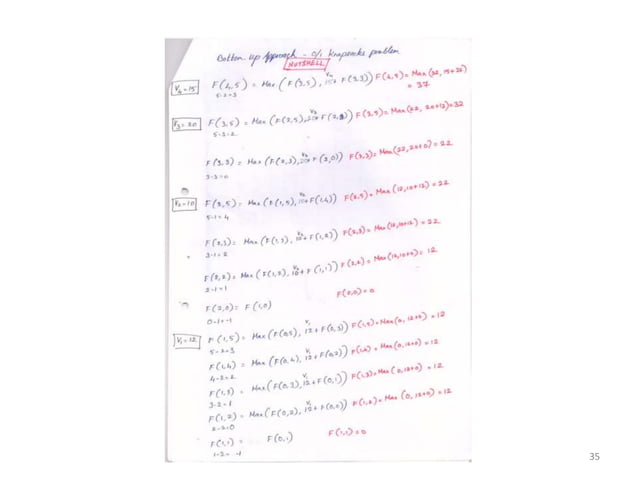 Bottom-up Approach - 0/1 Knapsacks problem
NUTSHELL
V4=15
F(4,5) = Max (F(3,5), V4 15+ F(3,3)) F(4,5)= Max(32, 15+22) = 37
5-2=3
V3=20
F(3,5) = Max (F(2,5), V3 20+ F(2,2)) F(3,5)= Max(22, 20+12)=32
5-3=2
F(3,3) = Max (F(2,3), V3 20+ F(2,0)) F(3,3)= Max(22,20+0) = 22
3-3=0
V2=10
F(2,5) = Max (F(1,5), V2 10+ F(1,4)) F(2,5)= Max(12,10+12) = 22
5-1=4
F(2,3) = Max (F(1,3), V2 10+ F(1,2)) F(2,3)= Max(12,10+12) = 22
3-1=2
F(2,2) = Max (F(1,2), V2 10+ F(1,1)) F(2,2)= Max(12,10+0) = 12
2-1=1
F(2,0) = F(1,0) F(2,0)=0
0-1=-1
V1=12
F(1,5) = Max (F(0,5), V1 12+ F(0,3)) F(1,5)=Max(0, 12+0) = 12
5-2=3
F(1,4) = Max (F(0,4), V1 12+F(0,2)) F(1,4)= Max(0,12+0) = 12
4-2=2
F(1,3) = Max (F(0,3), V1 12+F(0,1)) F(1,3)=Max(0,12+0) = 12
3-2=1
F(1,2) = Max (F(0,2), V1 12+ F(0,0)) F(1,2)= Max (0,12+0) = 12
2-2=0
F(1,1) = F(0,1) F(1,1)=0
1-2=-1
35